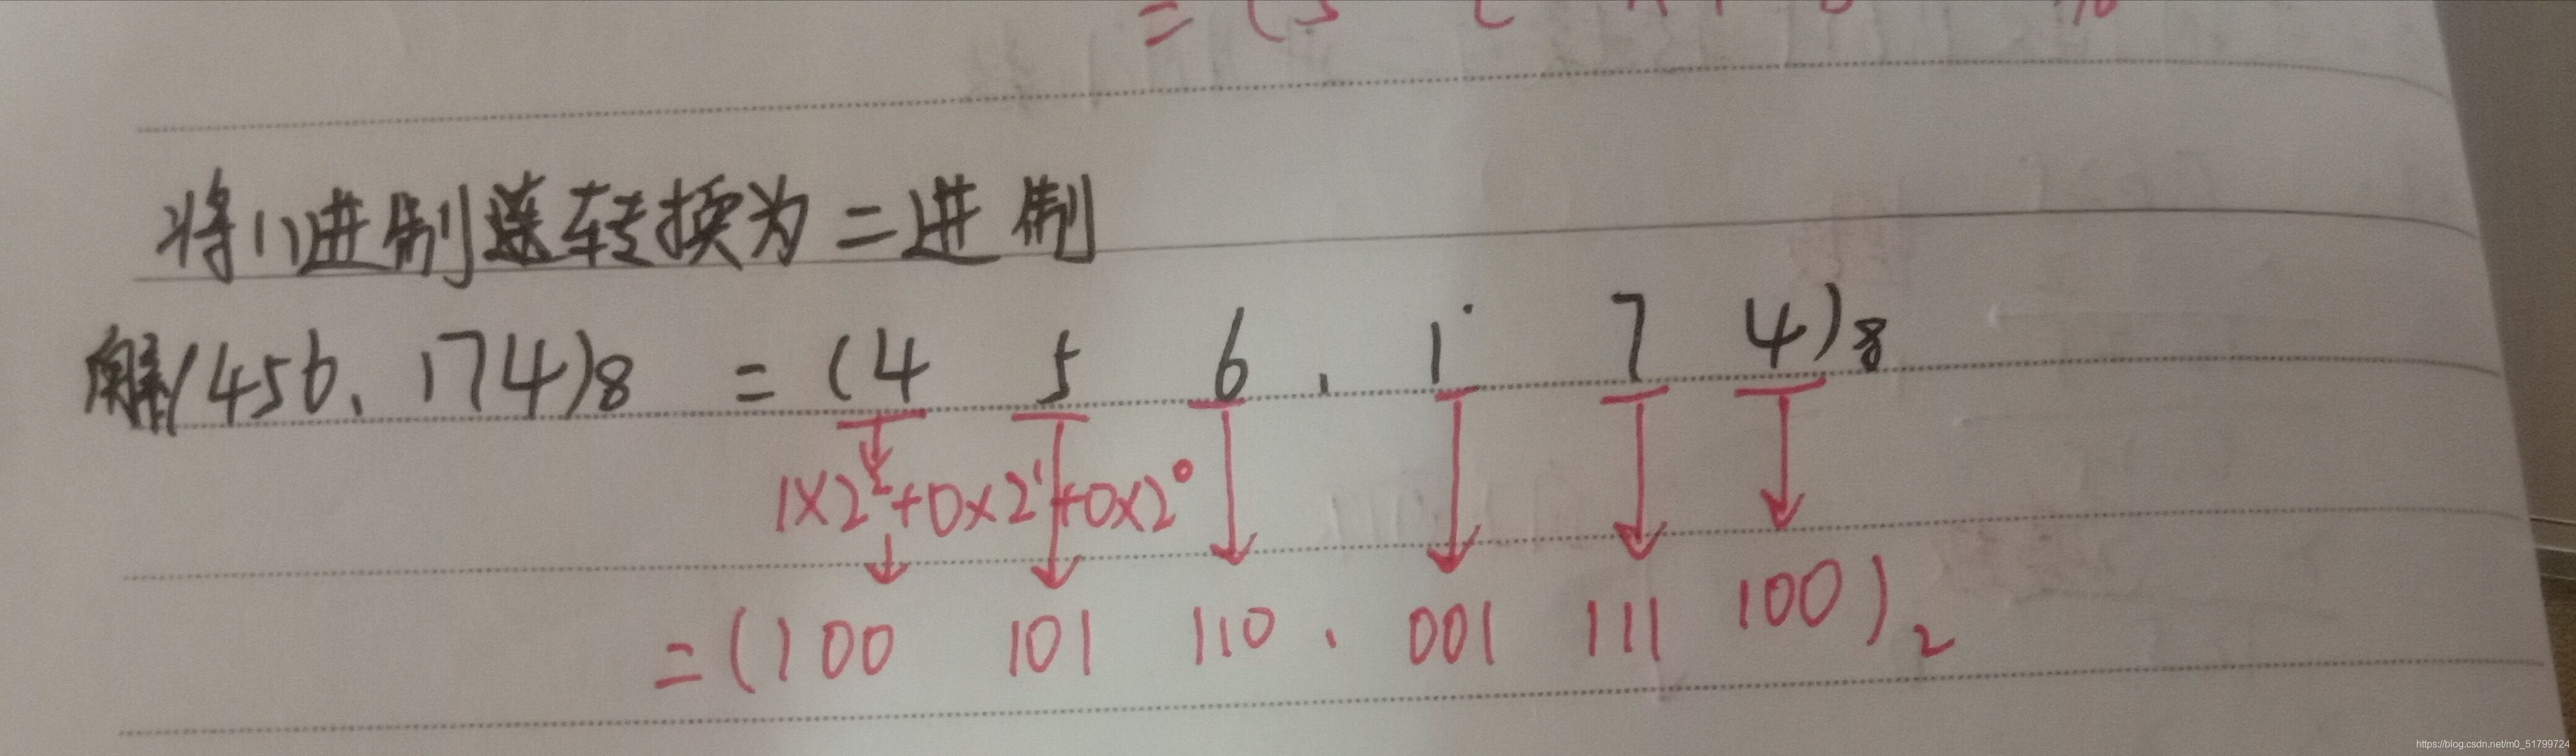 将八进制逆转换为二进制
解(456.174)8 = (4 5 6 . 1 7 4)8
1×2²+0×2¹+0×2⁰
=(100 101 110 . 001 111 100)2
https://blog.csdn.net/m0_51799724